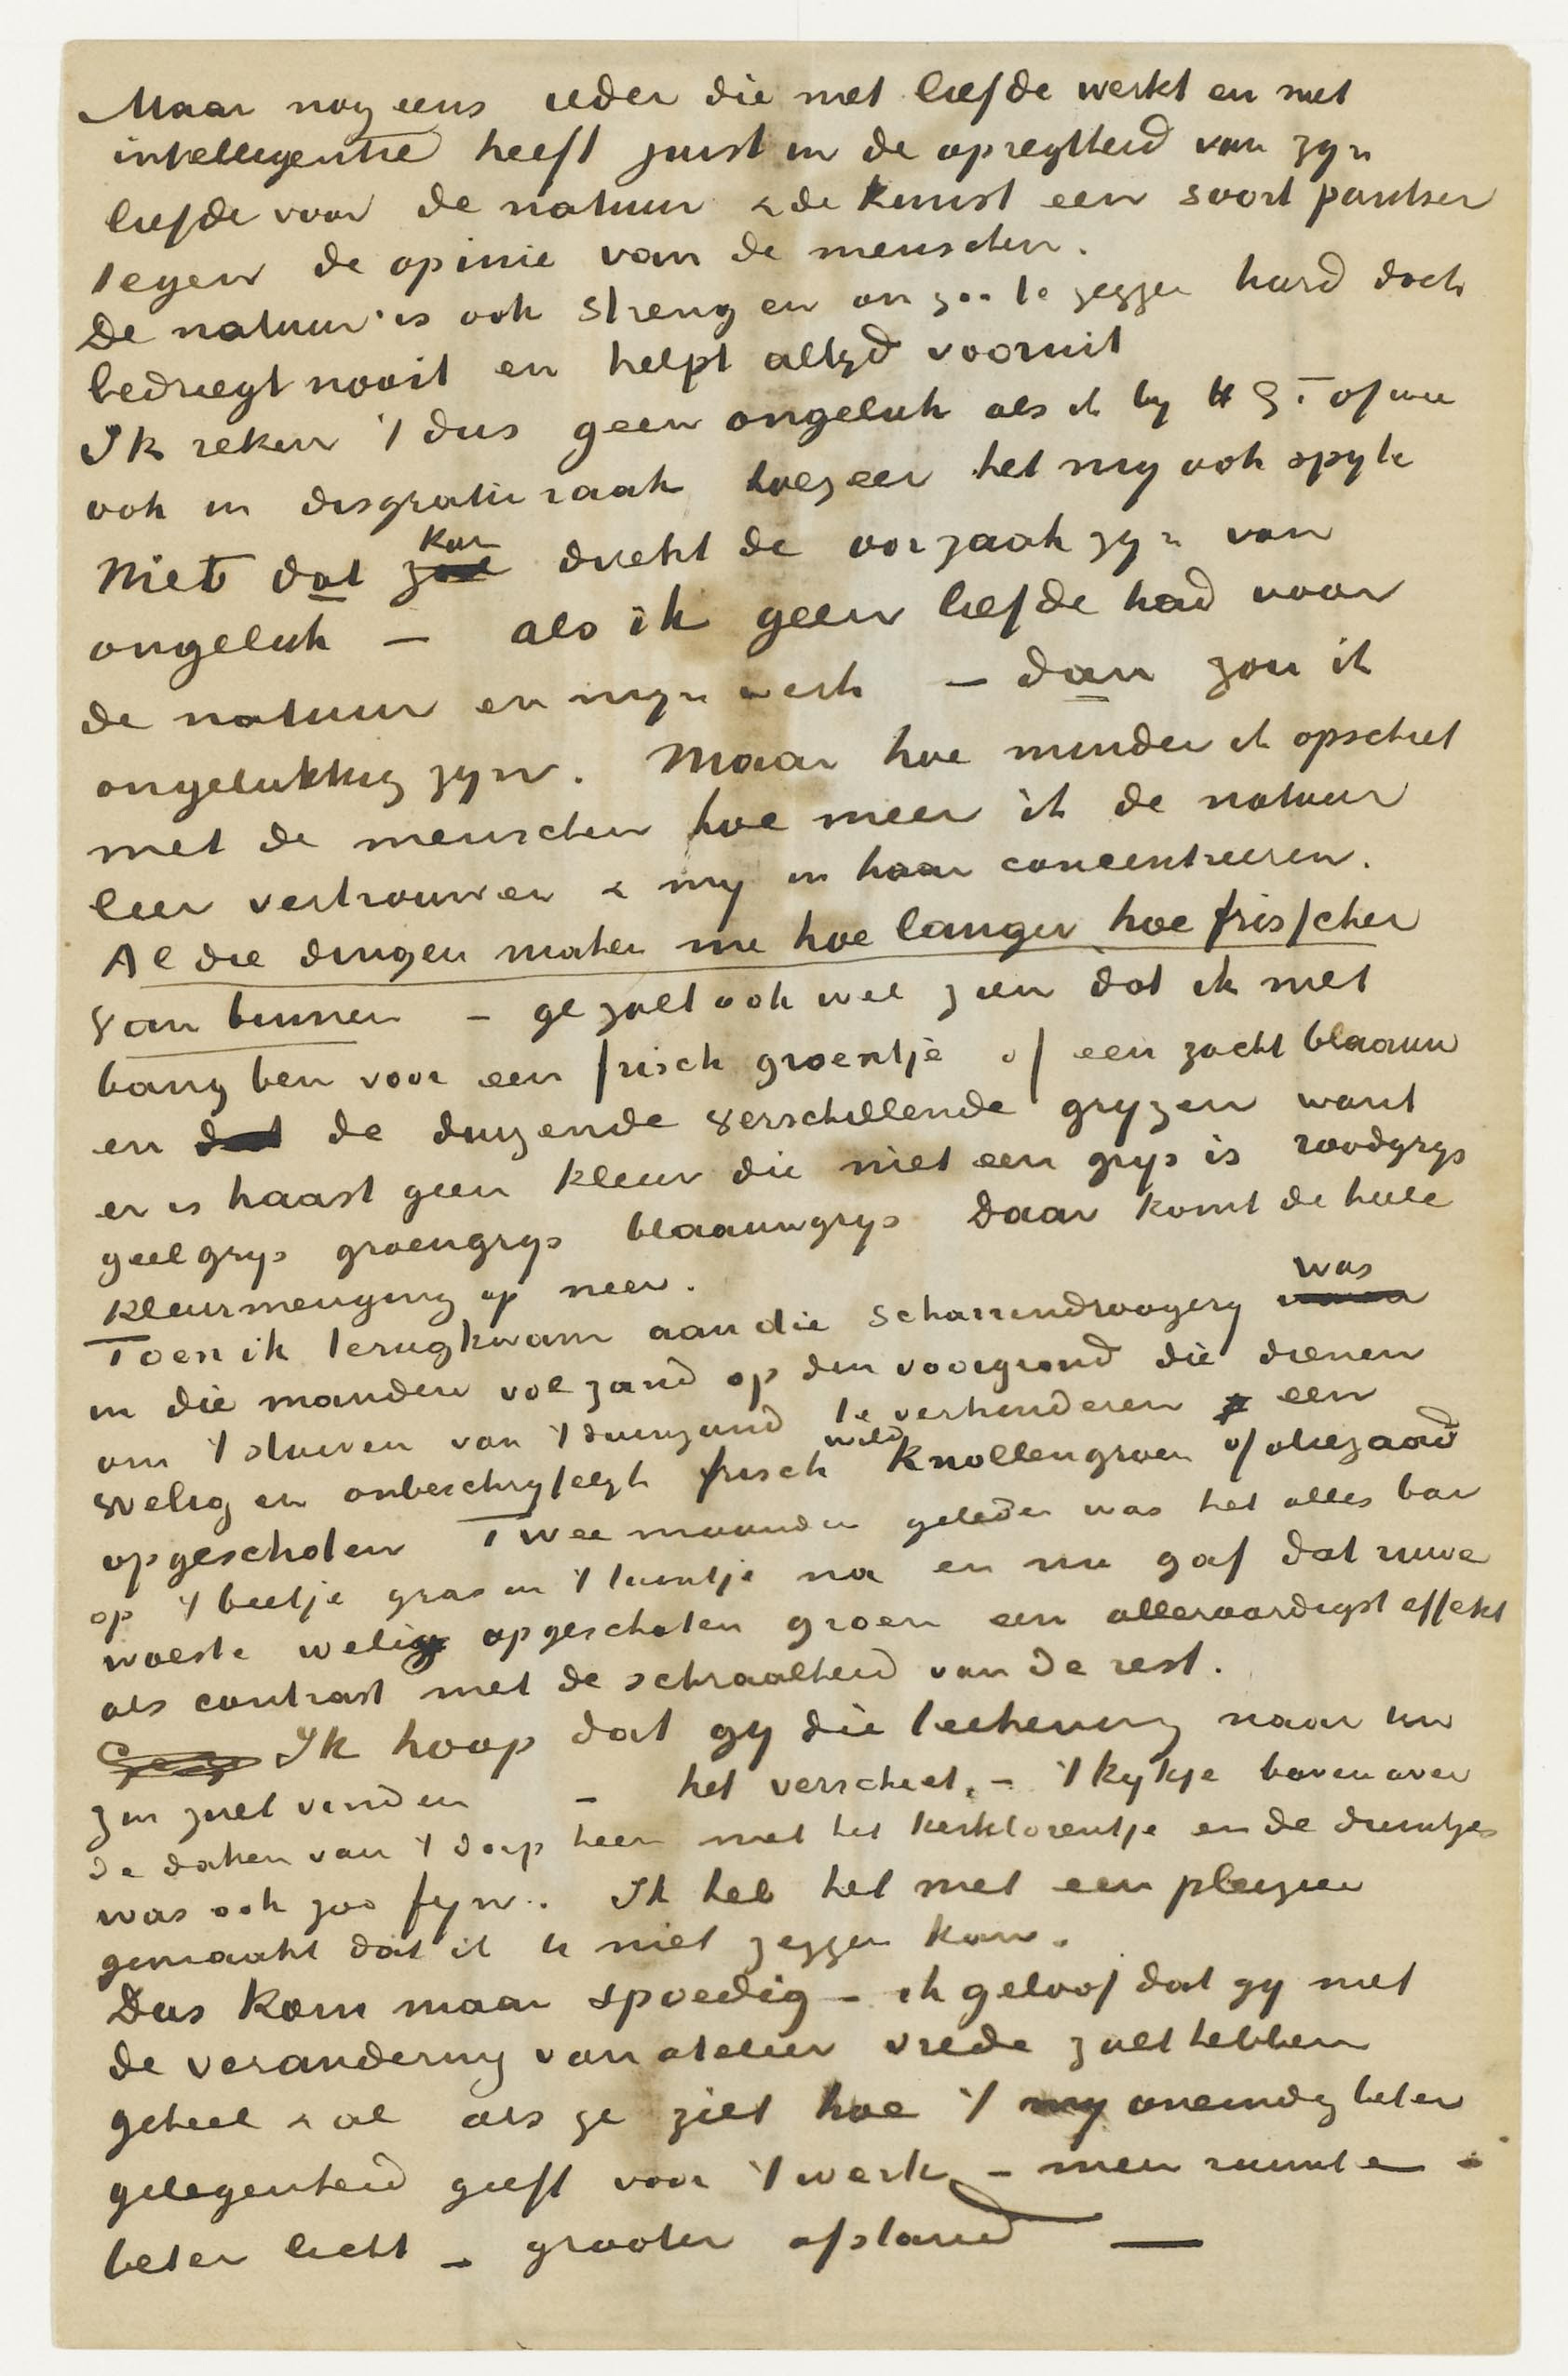 Maar nog eens ieder die met liefde werkt en met
intelligentie heeft juist in de opregtheid van zyn
liefde voor de natuur & de kunst een soort pantser
tegen de opinie van de menschen.
De natuur is ook streng en om zoo te zeggen hard doch
bedriegt nooit en helpt altyd vooruit
Ik reken 't dus geen ongeluk als ik by H G T of wie
ook in disgratie raak hoezeer het my ook spyte
Niet dat kan direkt de oorzaak zyn van
ongeluk – als ik geen liefde had voor
de natuur en myn werk – dan zou ik
ongelukkig zyn. Maar hoe minder ik opschiet
met de menschen hoe meer ik de natuur
leer vertrouwen & my in haar concentreeren.
Al die dingen maken me hoe langer hoe frisscher
van binnen – ge zult ook wel zien dat ik niet
bang ben voor een frisch groentje of een zacht blaauw
en de duizende verschillende gryzen want
er is haast geen kleur die niet een grys is roodgrys
geelgrys groengrys blaauwgrys daar komt de heele
kleurmenging op neer.
Toen ik terugkwam aan die scharrendroogery was
in die manden vol zand op den voorgrond die dienen
om 't stuiven van 't duinzand te verhinderen een
welig en onbeschryfelyk frisch wild knollengroen of oliezaad
opgeschoten Twee maanden geleden was het alles bar
op 't beetje gras in 't tuintje na en nu gaf dat ruwe
woeste welig opgeschoten groen een alleraardigst effekt
als contrast met de schraalheid van de rest.
Ik hoop dat gy die teekening naar uw
zin zult vinden – het verschiet, – 't kykje boven over
de daken van 't dorp heen met het kerktorentje en de duintjes
was ook zoo fyn. Ik heb het met een pleizier
gemaakt dat ik U niet zeggen kan.
Dus kom maar spoedig – ik geloof dat gy met
de verandering van atelier vrede zult hebben
geheel & al als ge ziet hoe 't my oneindig beter
gelegenheid geeft voor 't werk – meer ruimte –
beter licht – grooter afstand —